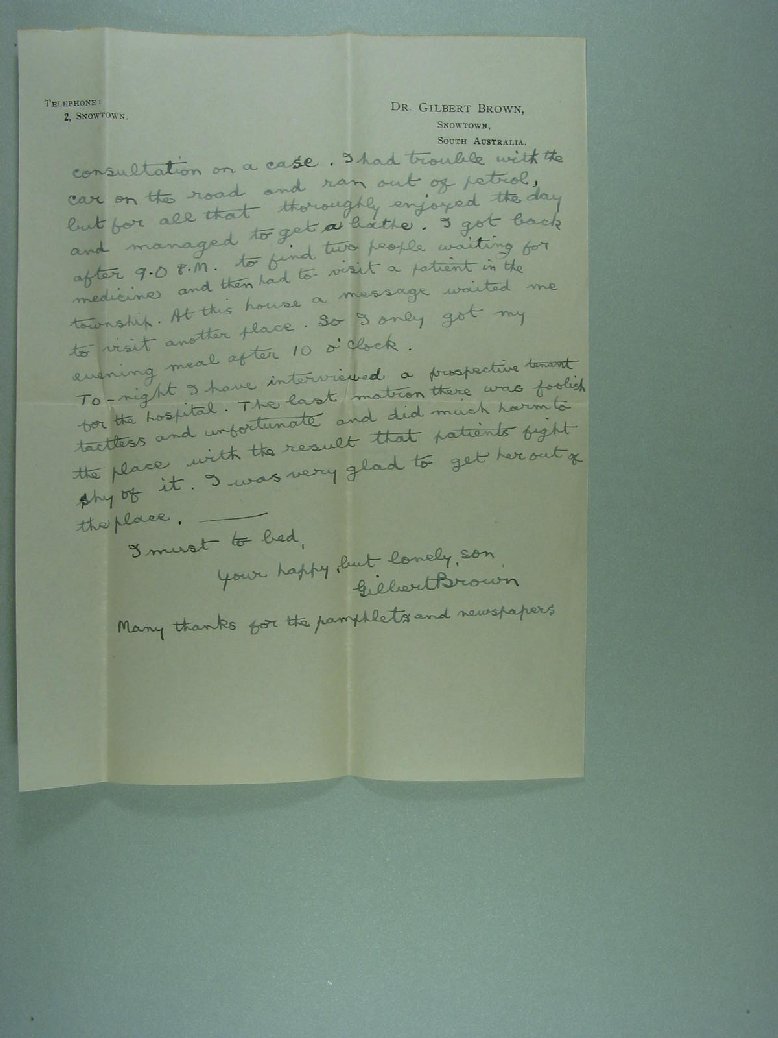 TELEPHONE:
2, SNOWTOWN.
DR. GILBERT BROWN,
SNOWTOWN,
SOUTH AUSTRALIA.
consultation on a case. I had trouble with the
car on the road and ran out of petrol,
but for all that thoroughly enjoyed the day
and managed to get a bathe. I got back
after 9.0 P.M. to find two people waiting for
medicines and then had to visit a patient in the
township. At this house a message waited me
to visit another place. So I only got my
evening meal after 10 o'clock.
To-night I have interviewed a prospective tenant
for the hospital. The last matron there was foolish
tactless and unfortunate and did much harm to
the place with the result that patients fight
shy of it. I was very glad to get her out of
the place. ——
I must to bed,
Your happy, but lonely, son
Gilbert Brown
Many thanks for the pamphlets and newspapers